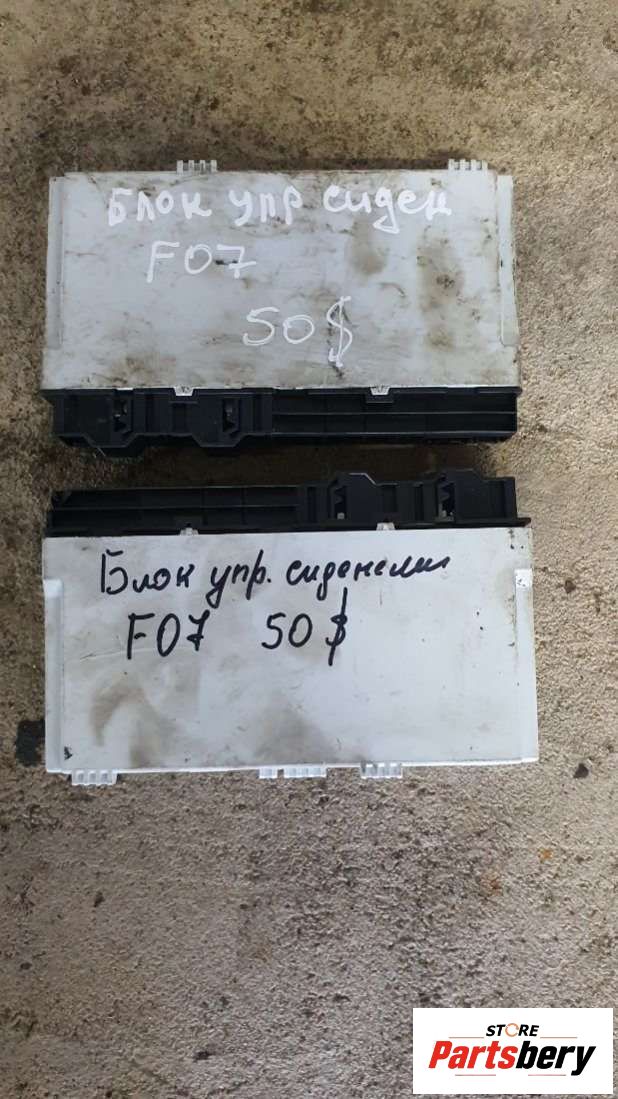 Блок упр сиден
F07
50$
Блок упр. сиденьями
F07 50$
STORE
Partsbery